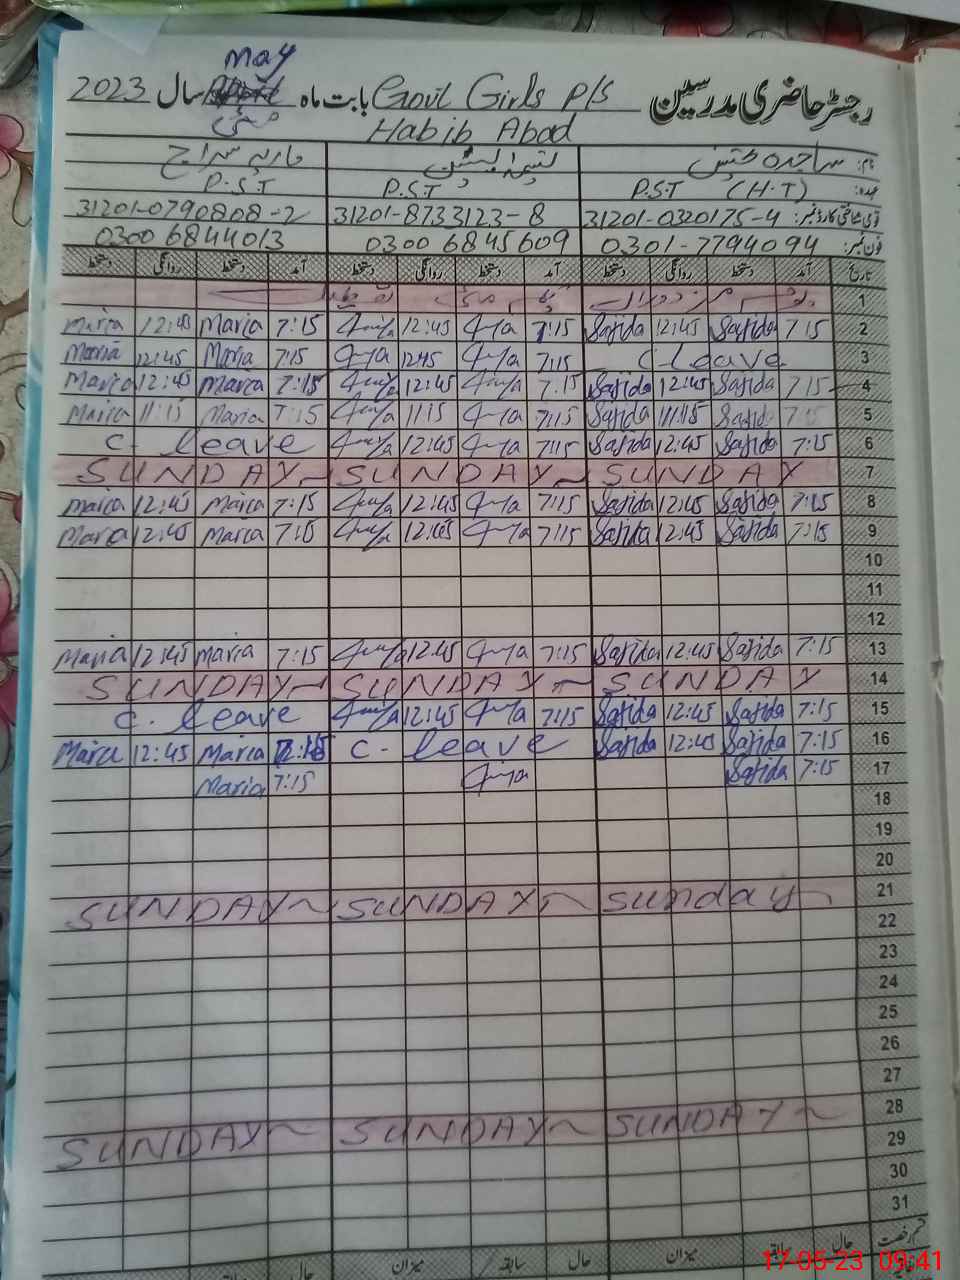 رجسٹر حاضری مدرسین Govt Girls P/S بابت ماہ May سال 2023
Habib Abad مئی
نام: ساجدہ ماریہ سراج
عہدہ: P.S.T (H.T) P.S.T P.S.T
قومی شناختی کارڈ نمبر: 31201-0320175-4 31201-8733123-8 31201-0790808-2
فون نمبر: 0301-7794094 0300 6845609 0300 6844013
تاریخ آمد دستخط روانگی دستخط آمد دستخط روانگی دستخط آمد دستخط روانگی دستخط
1
Maria 12:45 Maria 7:15 12:45 7:15 Sajida 12:45 Sajida 7:15 2
Maria 12:45 Maria 7:15 12:45 7:15 C leave 3
Maria 12:45 Maria 7:15 12:45 7:15 Sajida 12:45 Sajida 7:15 4
Maria 11:15 Maria 7:15 11:15 7:15 Sajida 11:15 Sajida 7:15 5
C. leave 12:45 7:15 Sajida 12:45 Sajida 7:15 6
SUNDAY ~ SUNDAY ~ SUNDAY 7
Maria 12:45 Maria 7:15 12:45 7:15 Sajida 12:45 Sajida 7:15 8
Maria 12:45 Maria 7:15 12:45 7:15 Sajida 12:45 Sajida 7:15 9
10
11
12
Maria 12:45 Maria 7:15 12:45 7:15 Sajida 12:45 Sajida 7:15 13
SUNDAY ~ SUNDAY ~ SUNDAY 14
C. leave 12:45 7:15 Sajida 12:45 Sajida 7:15 15
Maria 12:45 Maria C- leave Sajida 12:45 Sajida 7:15 16
Maria 7:15 Sajida 7:15 17
18
19
20
SUNDAY ~ SUNDAY ~ Sunday ~ 21
22
23
24
25
26
27
28
SUNDAY ~ SUNDAY ~ SUNDAY ~ 29
30
31
قسم رخصت حال سابقہ میزان حال سابقہ میزان حال سابقہ
17-05-23 09:41